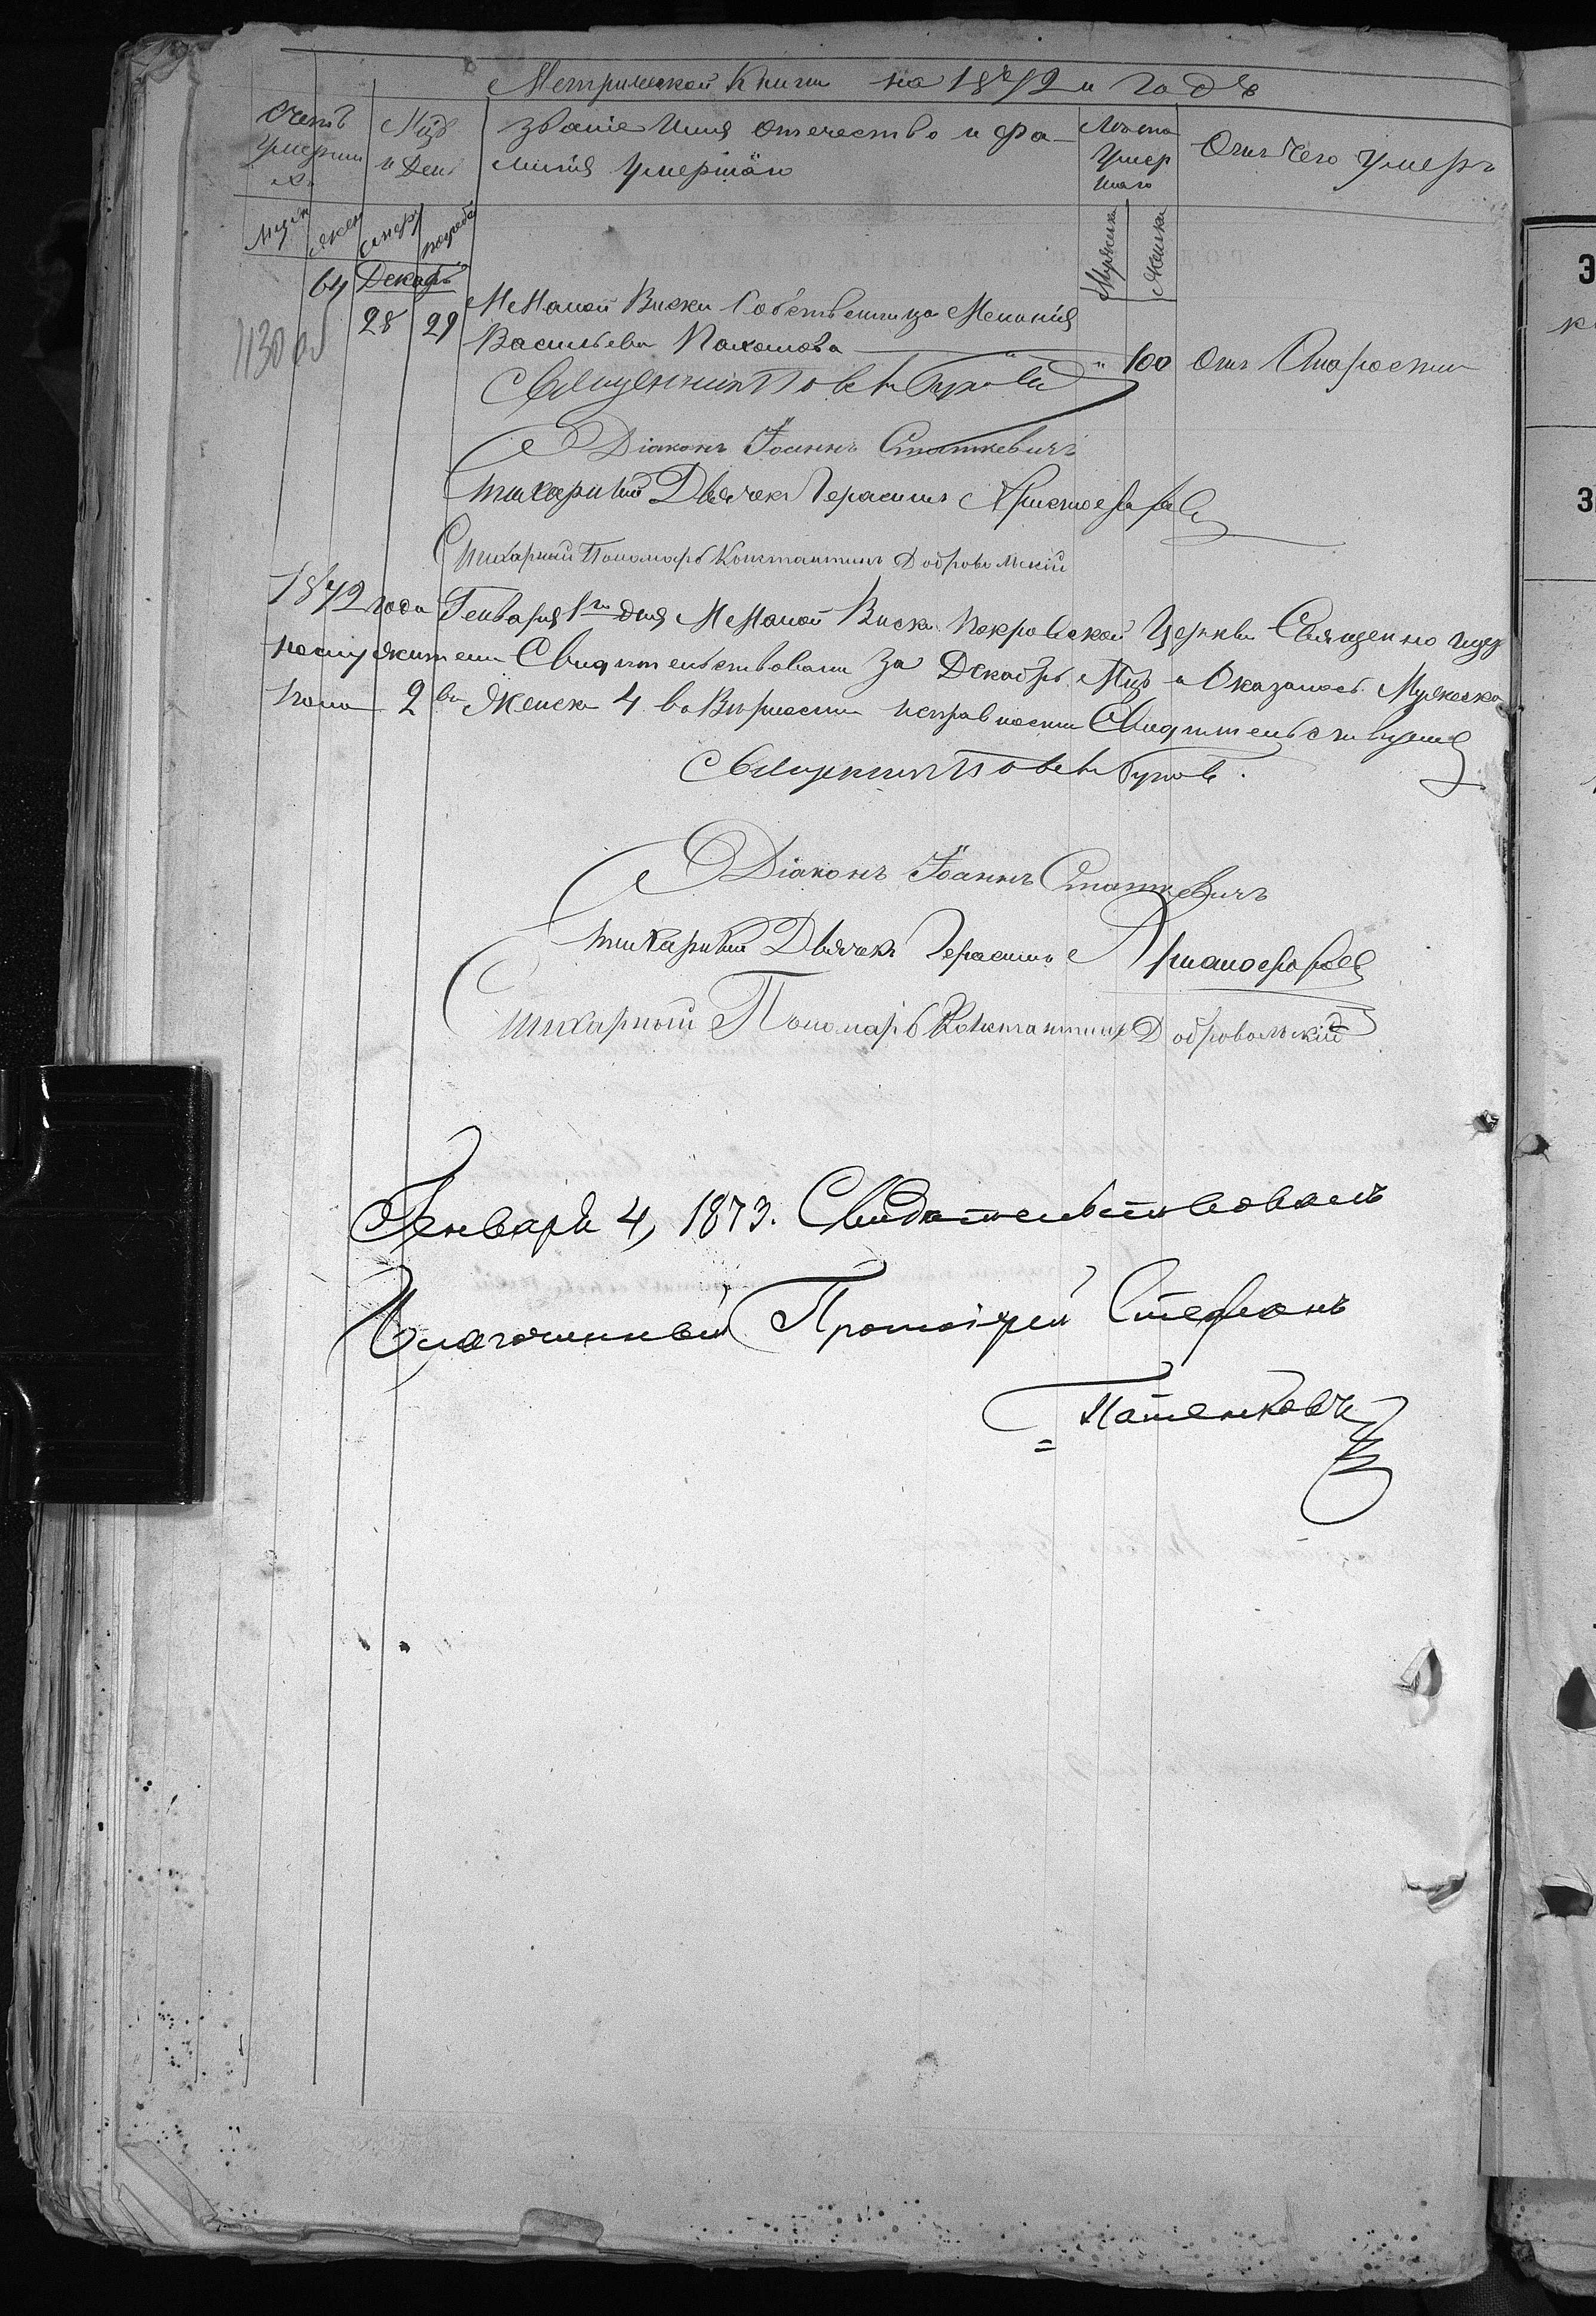 Метрической Книги на 1872й годъ
Счетъ умерших
Мѣцъ и День
Званіе Имя Отечество и фамилія умершаго
Лѣта Умершаго
Отъ чего умеръ
Муж
Жен
Смер
погреб
Мужеска
Женска
64 Декабрь
28 29 М Малой Виски Собственница Меланія
Васильева Пахомова " 100 Отъ Старости
1130 об
Священникъ
Діаконъ Іоаннъ Статкевичъ
Стихарный Дьячекъ Герасимъ Христофоровъ
Стихарный Пономарь Константинъ Добровольскій
1872 года Генваря 1го дня М Малой Виски Покровской Церкви Священно церк
нослужители Свидѣтельствовали за Декабрь Мцъ и Оказалось Мужеска
пола 2 Женска 4 въ Вѣрности исправности Свидѣтельствуемъ
Священникъ
Діаконъ Іоаннъ Статкевичъ
Стихарный Дьячекъ Герасимъ Христофоровъ
Стихарный Пономарь Константинъ Добровольскій
Генваря 4, 1873. Свидѣтельствовалъ
Благочинный Протоіерей Стефанъ
Патенковъ